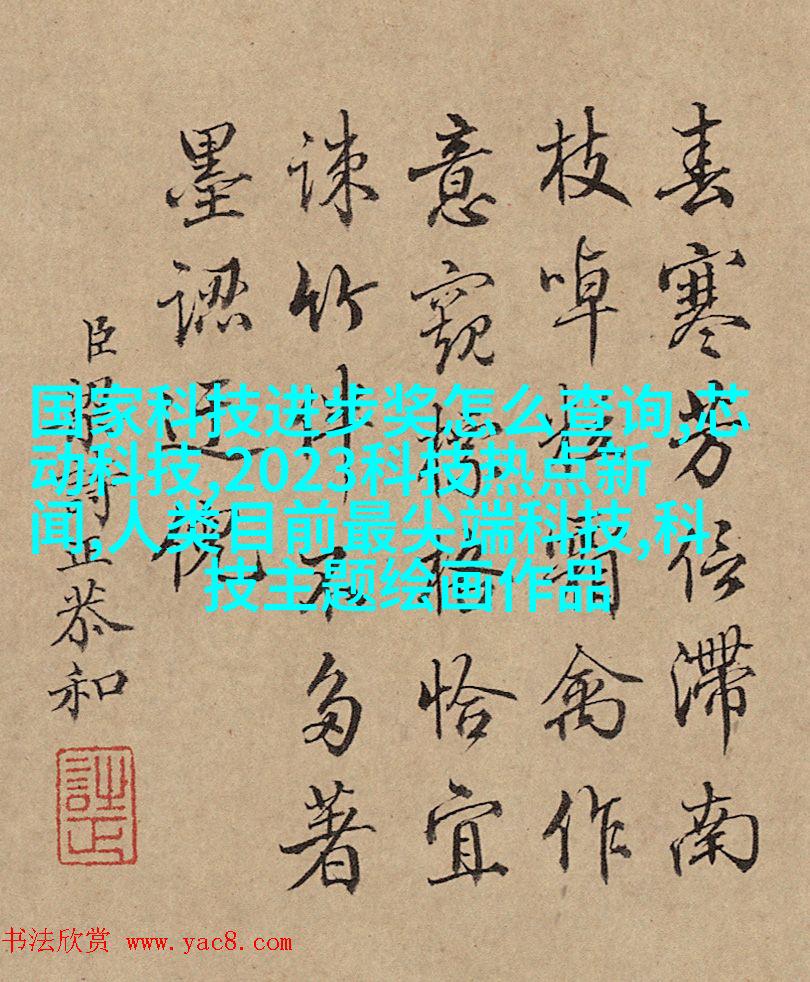 春寒芳信滯南
枝啅霜禽作
意窺格恰宜
竹伴不多著
墨
臣梁詩正恭和
国家科技进步奖怎么查询,芯
动科技,2023科技热点新
闻,人类目前最尖端科技,科
技主题绘画作品
书法欣赏 www.yac8.com